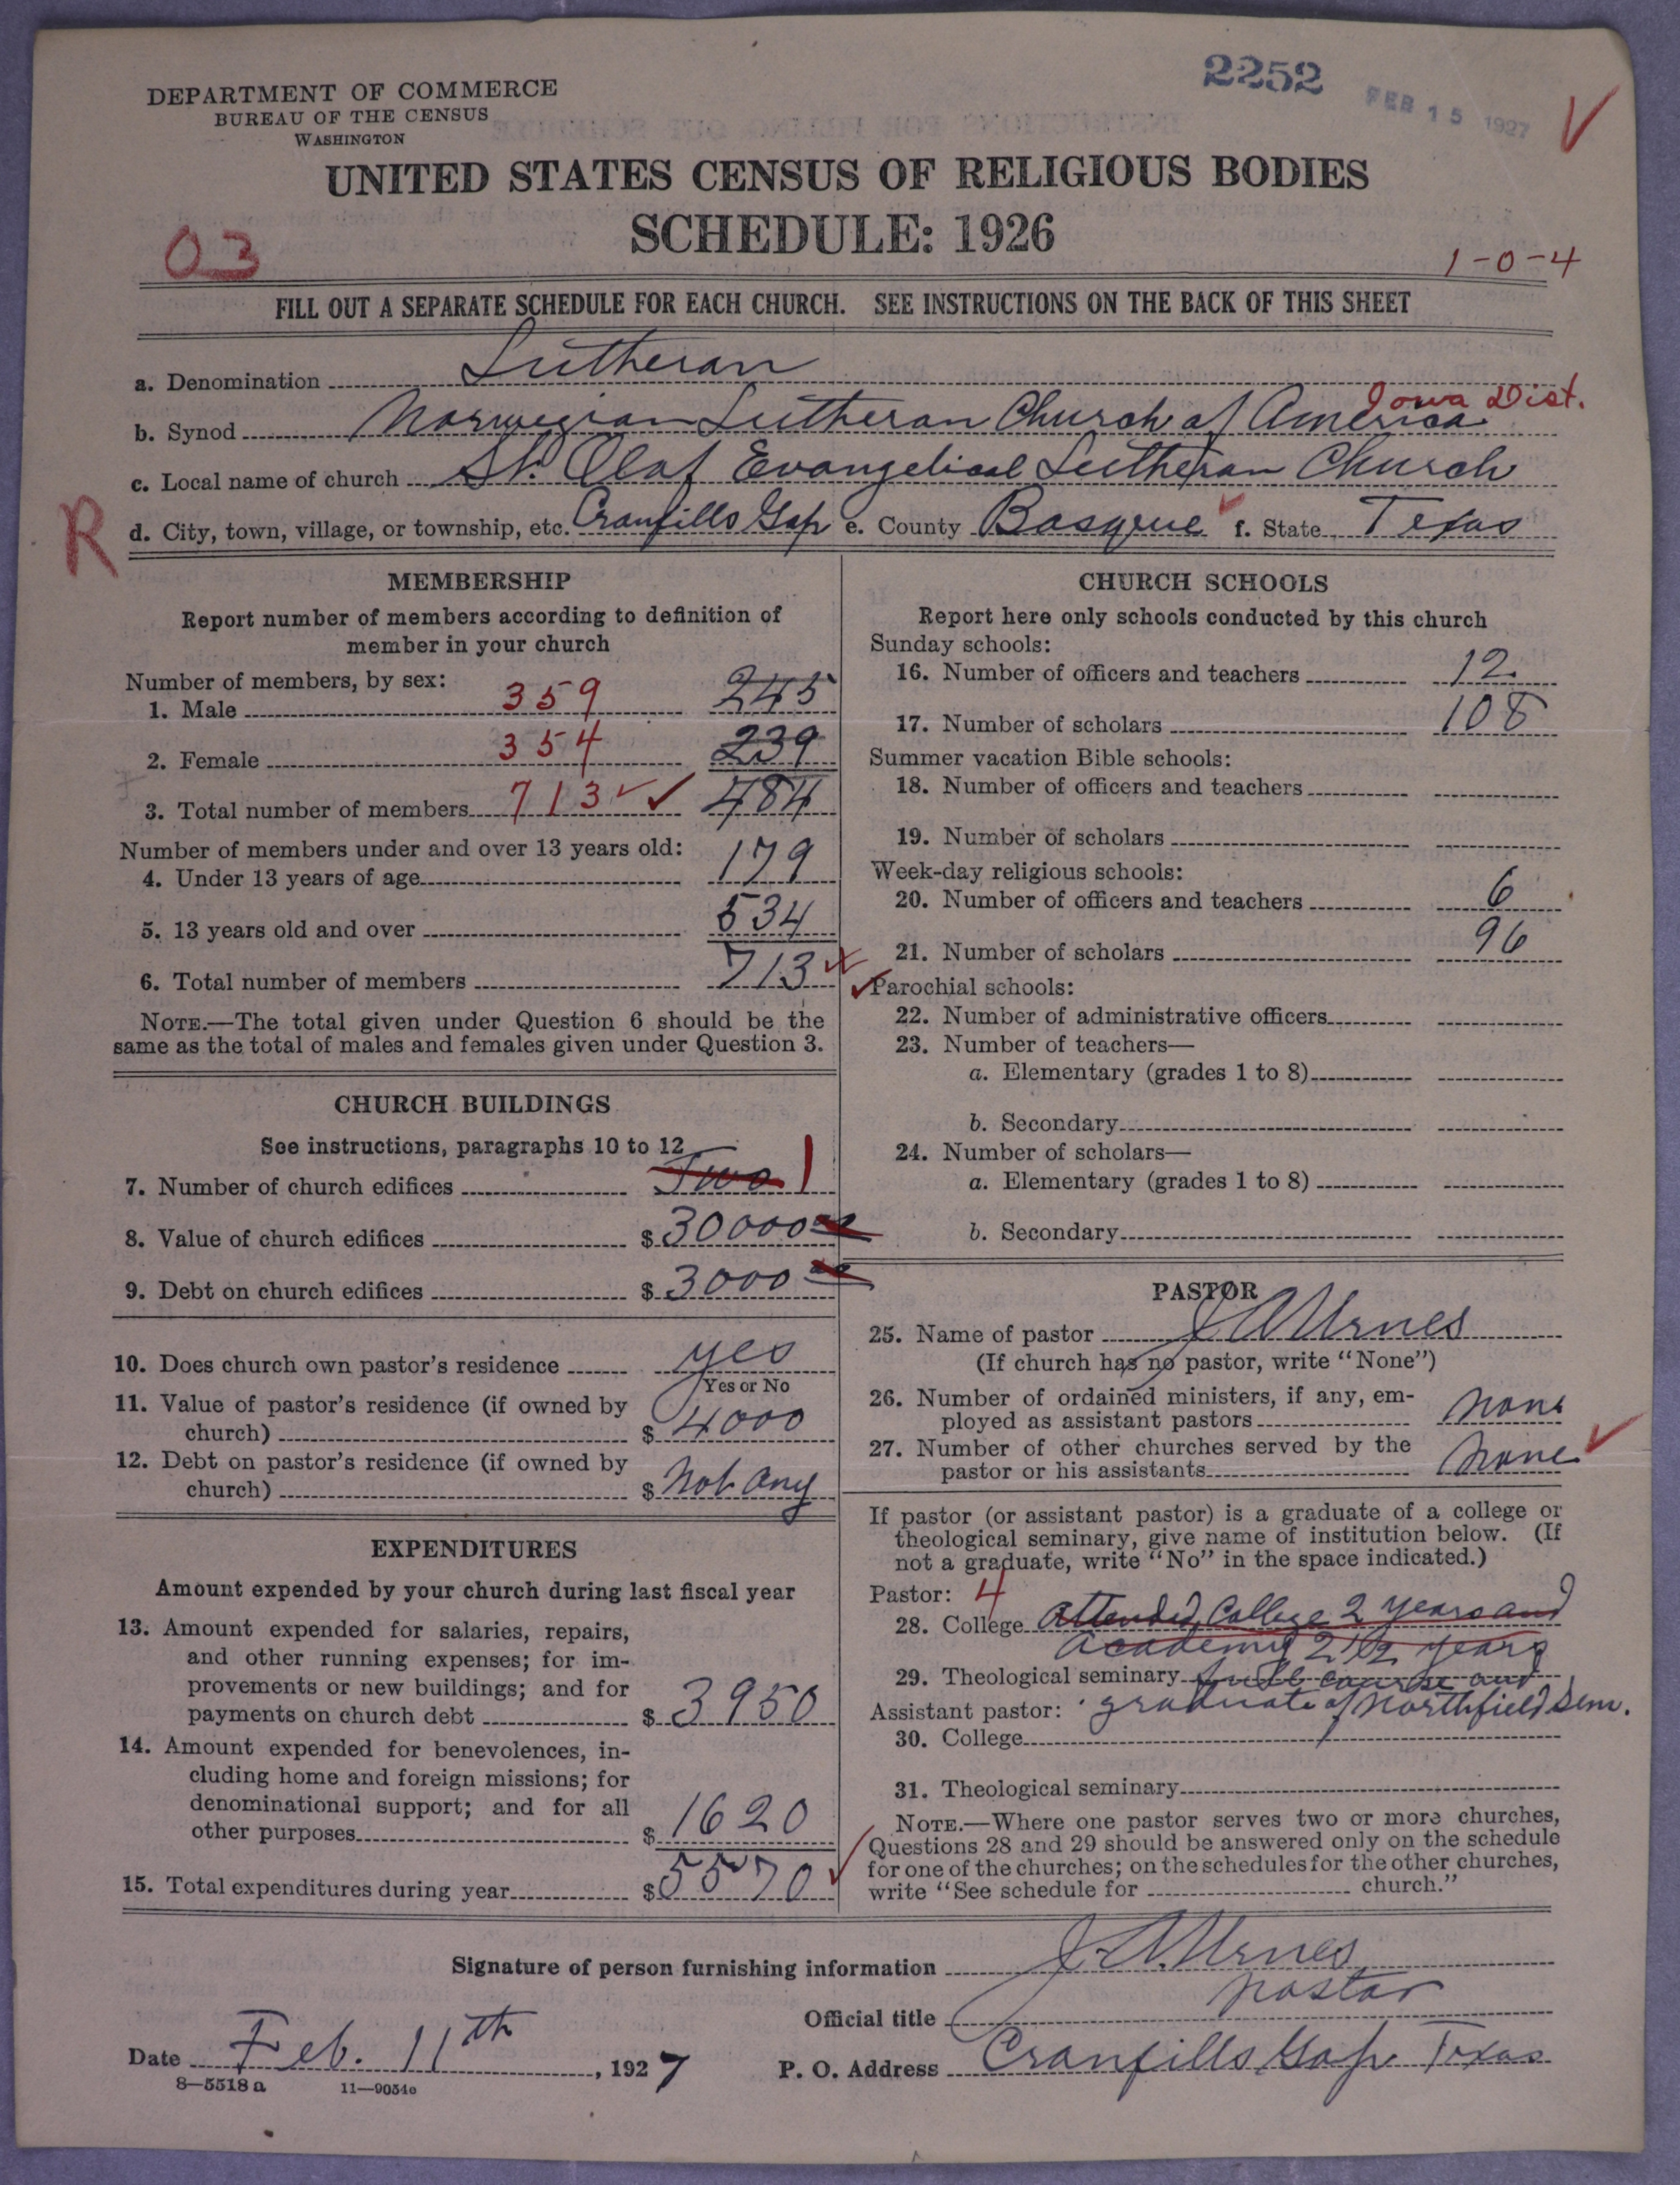 2252
FEB 15 1927
DEPARTMENT OF COMMERCE
BUREAU OF THE CENSUS
WASHINGTON
UNITED STATES CENSUS OF RELIGIOUS BODIES
SCHEDULE: 1926
03
1-0-4
FILL OUT A SEPARATE SCHEDULE FOR EACH CHURCH. SEE INSTRUCTIONS ON THE BACK OF THIS SHEET
a. Denomination Lutheran
b. Synod Norwegian Lutheran Church of America Iowa Dist.
c. Local name of church St. Olaf Evangelical Lutheran Church
R
d. City, town, village, or township, etc. Cranfills Gap e. County Bosque f. State Texas
MEMBERSHIP
Report number of members according to definition of
member in your church
Number of members, by sex:
1. Male 359 245
2. Female 354 239
3. Total number of members 713 484
Number of members under and over 13 years old:
4. Under 13 years of age 179
5. 13 years old and over 534
6. Total number of members 713
NOTE.—The total given under Question 6 should be the
same as the total of males and females given under Question 3.
CHURCH BUILDINGS
See instructions, paragraphs 10 to 12
7. Number of church edifices Two 1
8. Value of church edifices $ 30000
9. Debt on church edifices $ 3000
10. Does church own pastor's residence yes
Yes or No
11. Value of pastor's residence (if owned by
church) $ 4000
12. Debt on pastor's residence (if owned by
church) $ Not any
EXPENDITURES
Amount expended by your church during last fiscal year
13. Amount expended for salaries, repairs,
and other running expenses; for im-
provements or new buildings; and for
payments on church debt $ 3950
14. Amount expended for benevolences, in-
cluding home and foreign missions; for
denominational support; and for all
other purposes $ 1620
15. Total expenditures during year $ 5570
CHURCH SCHOOLS
Report here only schools conducted by this church
Sunday schools:
16. Number of officers and teachers 12
17. Number of scholars 108
Summer vacation Bible schools:
18. Number of officers and teachers
19. Number of scholars
Week-day religious schools:
20. Number of officers and teachers 6
21. Number of scholars 96
Parochial schools:
22. Number of administrative officers
23. Number of teachers—
a. Elementary (grades 1 to 8)
b. Secondary
24. Number of scholars—
a. Elementary (grades 1 to 8)
b. Secondary
PASTOR
25. Name of pastor J. A. Urnes
(If church has no pastor, write "None")
26. Number of ordained ministers, if any, em-
ployed as assistant pastors none
27. Number of other churches served by the
pastor or his assistants none
If pastor (or assistant pastor) is a graduate of a college or
theological seminary, give name of institution below. (If
not a graduate, write "No" in the space indicated.)
Pastor: 4
28. College attended College 2 years and
academy 2 1/2 years
29. Theological seminary full course and
Assistant pastor: graduate of Northfield Sem.
30. College
31. Theological seminary
NOTE.—Where one pastor serves two or more churches,
Questions 28 and 29 should be answered only on the schedule
for one of the churches; on the schedules for the other churches,
write "See schedule for church."
Signature of person furnishing information J. A. Urnes
Official title pastor
Date Feb. 11th, 1927 P. O. Address Cranfills Gap Texas
8—5518 a 11—9054